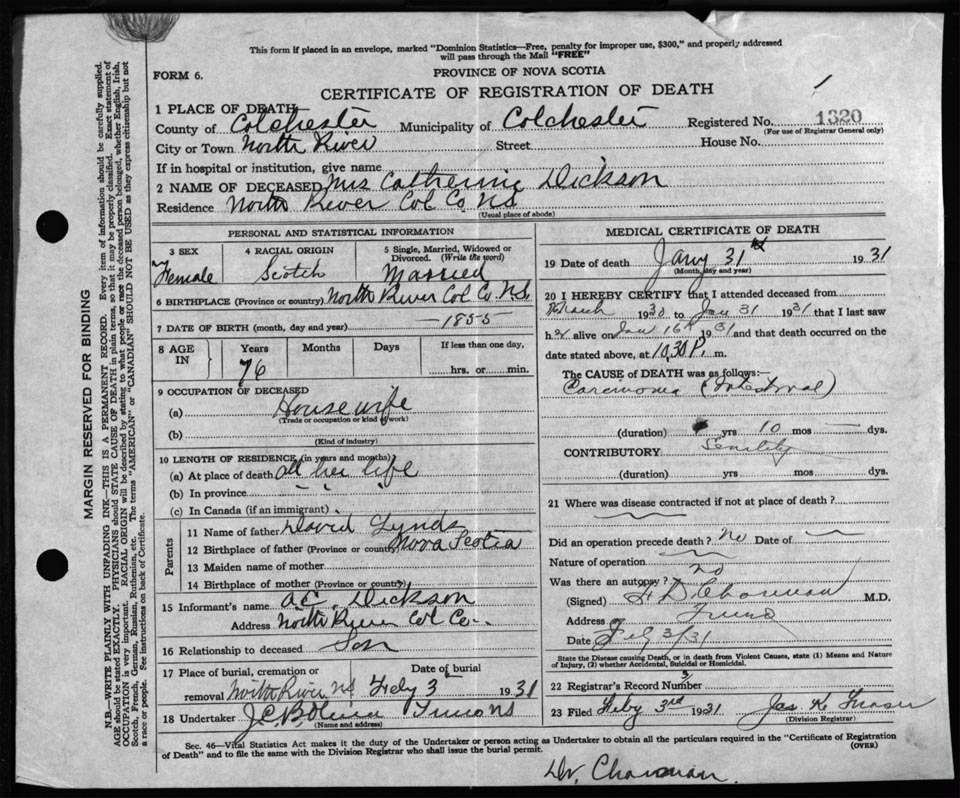 This form if placed in an envelope, marked "Dominion Statistics—Free, penalty for improper use, $300," and properly addressed
will pass through the Mail "FREE"
FORM 6.
PROVINCE OF NOVA SCOTIA
CERTIFICATE OF REGISTRATION OF DEATH
1 PLACE OF DEATH
County of Colchester Municipality of Colchester Registered No. 1320
(For use of Registrar General only)
City or Town North River Street House No.
If in hospital or institution, give name
2 NAME OF DECEASED Mrs Catherine Dickson
Residence North River Col Co N.S.
(Usual place of abode)
PERSONAL AND STATISTICAL INFORMATION
3 SEX 4 RACIAL ORIGIN 5 Single, Married, Widowed or
Divorced. (Write the word)
Female Scotch Married
6 BIRTHPLACE (Province or country) North River Col Co. N.S.
7 DATE OF BIRTH (month, day and year) — 1855
8 AGE IN Years Months Days If less than one day,
76 hrs. or min.
9 OCCUPATION OF DECEASED
(a) House wife
(Trade or occupation or kind of work)
(b)
(Kind of industry)
10 LENGTH OF RESIDENCE (in years and months)
(a) At place of death all her life
(b) In province " "
(c) In Canada (if an immigrant)
Parents
11 Name of father David Lynds
12 Birthplace of father (Province or country) Nova Scotia
13 Maiden name of mother
14 Birthplace of mother (Province or country)
15 Informant's name A.C. Dickson
Address North River Col Co.
16 Relationship to deceased Son
17 Place of burial, cremation or Date of burial
removal North River NS Feby 3 1931
18 Undertaker Truro NS
(Name and address)
MEDICAL CERTIFICATE OF DEATH
19 Date of death Jany 31st 1931
(Month, day and year)
20 I HEREBY CERTIFY that I attended deceased from
March 1930 to Jan 31 1931 that I last saw
her alive on Jan 16th 1931 and that death occurred on
date stated above, at 10.30 P. m.
The CAUSE of DEATH was as follows:—
Carcinoma (Intestinal)
(duration) yrs 10 mos — dys.
CONTRIBUTORY Senility
(duration) yrs mos dys.
21 Where was disease contracted if not at place of death?
Did an operation precede death? No Date of
Nature of operation
Was there an autopsy? no
(Signed) M.D.
Address Truro
Date Feb 3/31
State the Disease causing Death, or in death from Violent Causes, state (1) Means and Nature
of Injury, (2) whether Accidental, Suicidal or Homicidal.
22 Registrar's Record Number 3
23 Filed Feby 3rd 1931 Jas K. Fraser
(Division Registrar)
Sec. 46—Vital Statistics Act makes it the duty of the Undertaker or person acting as Undertaker to obtain all the particulars required in the "Certificate of Registration
of Death" and to file the same with the Division Registrar who shall issue the burial permit. (OVER)
MARGIN RESERVED FOR BINDING
N.B.—WRITE PLAINLY WITH UNFADING INK—THIS IS A PERMANENT RECORD. Every item of information should be carefully supplied.
AGE should be stated EXACTLY. PHYSICIANS should STATE CAUSE OF DEATH in plain terms, so that it may be properly classified. Exact statement of
OCCUPATION is very important. RACIAL ORIGIN will be described by stating to what people or race the deceased person belonged, whether English, Irish,
Scotch, French, German, Russian, Ruthenian, etc. The terms "AMERICAN" or "CANADIAN" SHOULD NOT BE USED as they express citizenship but not
a race or people. See instructions on back of Certificate.